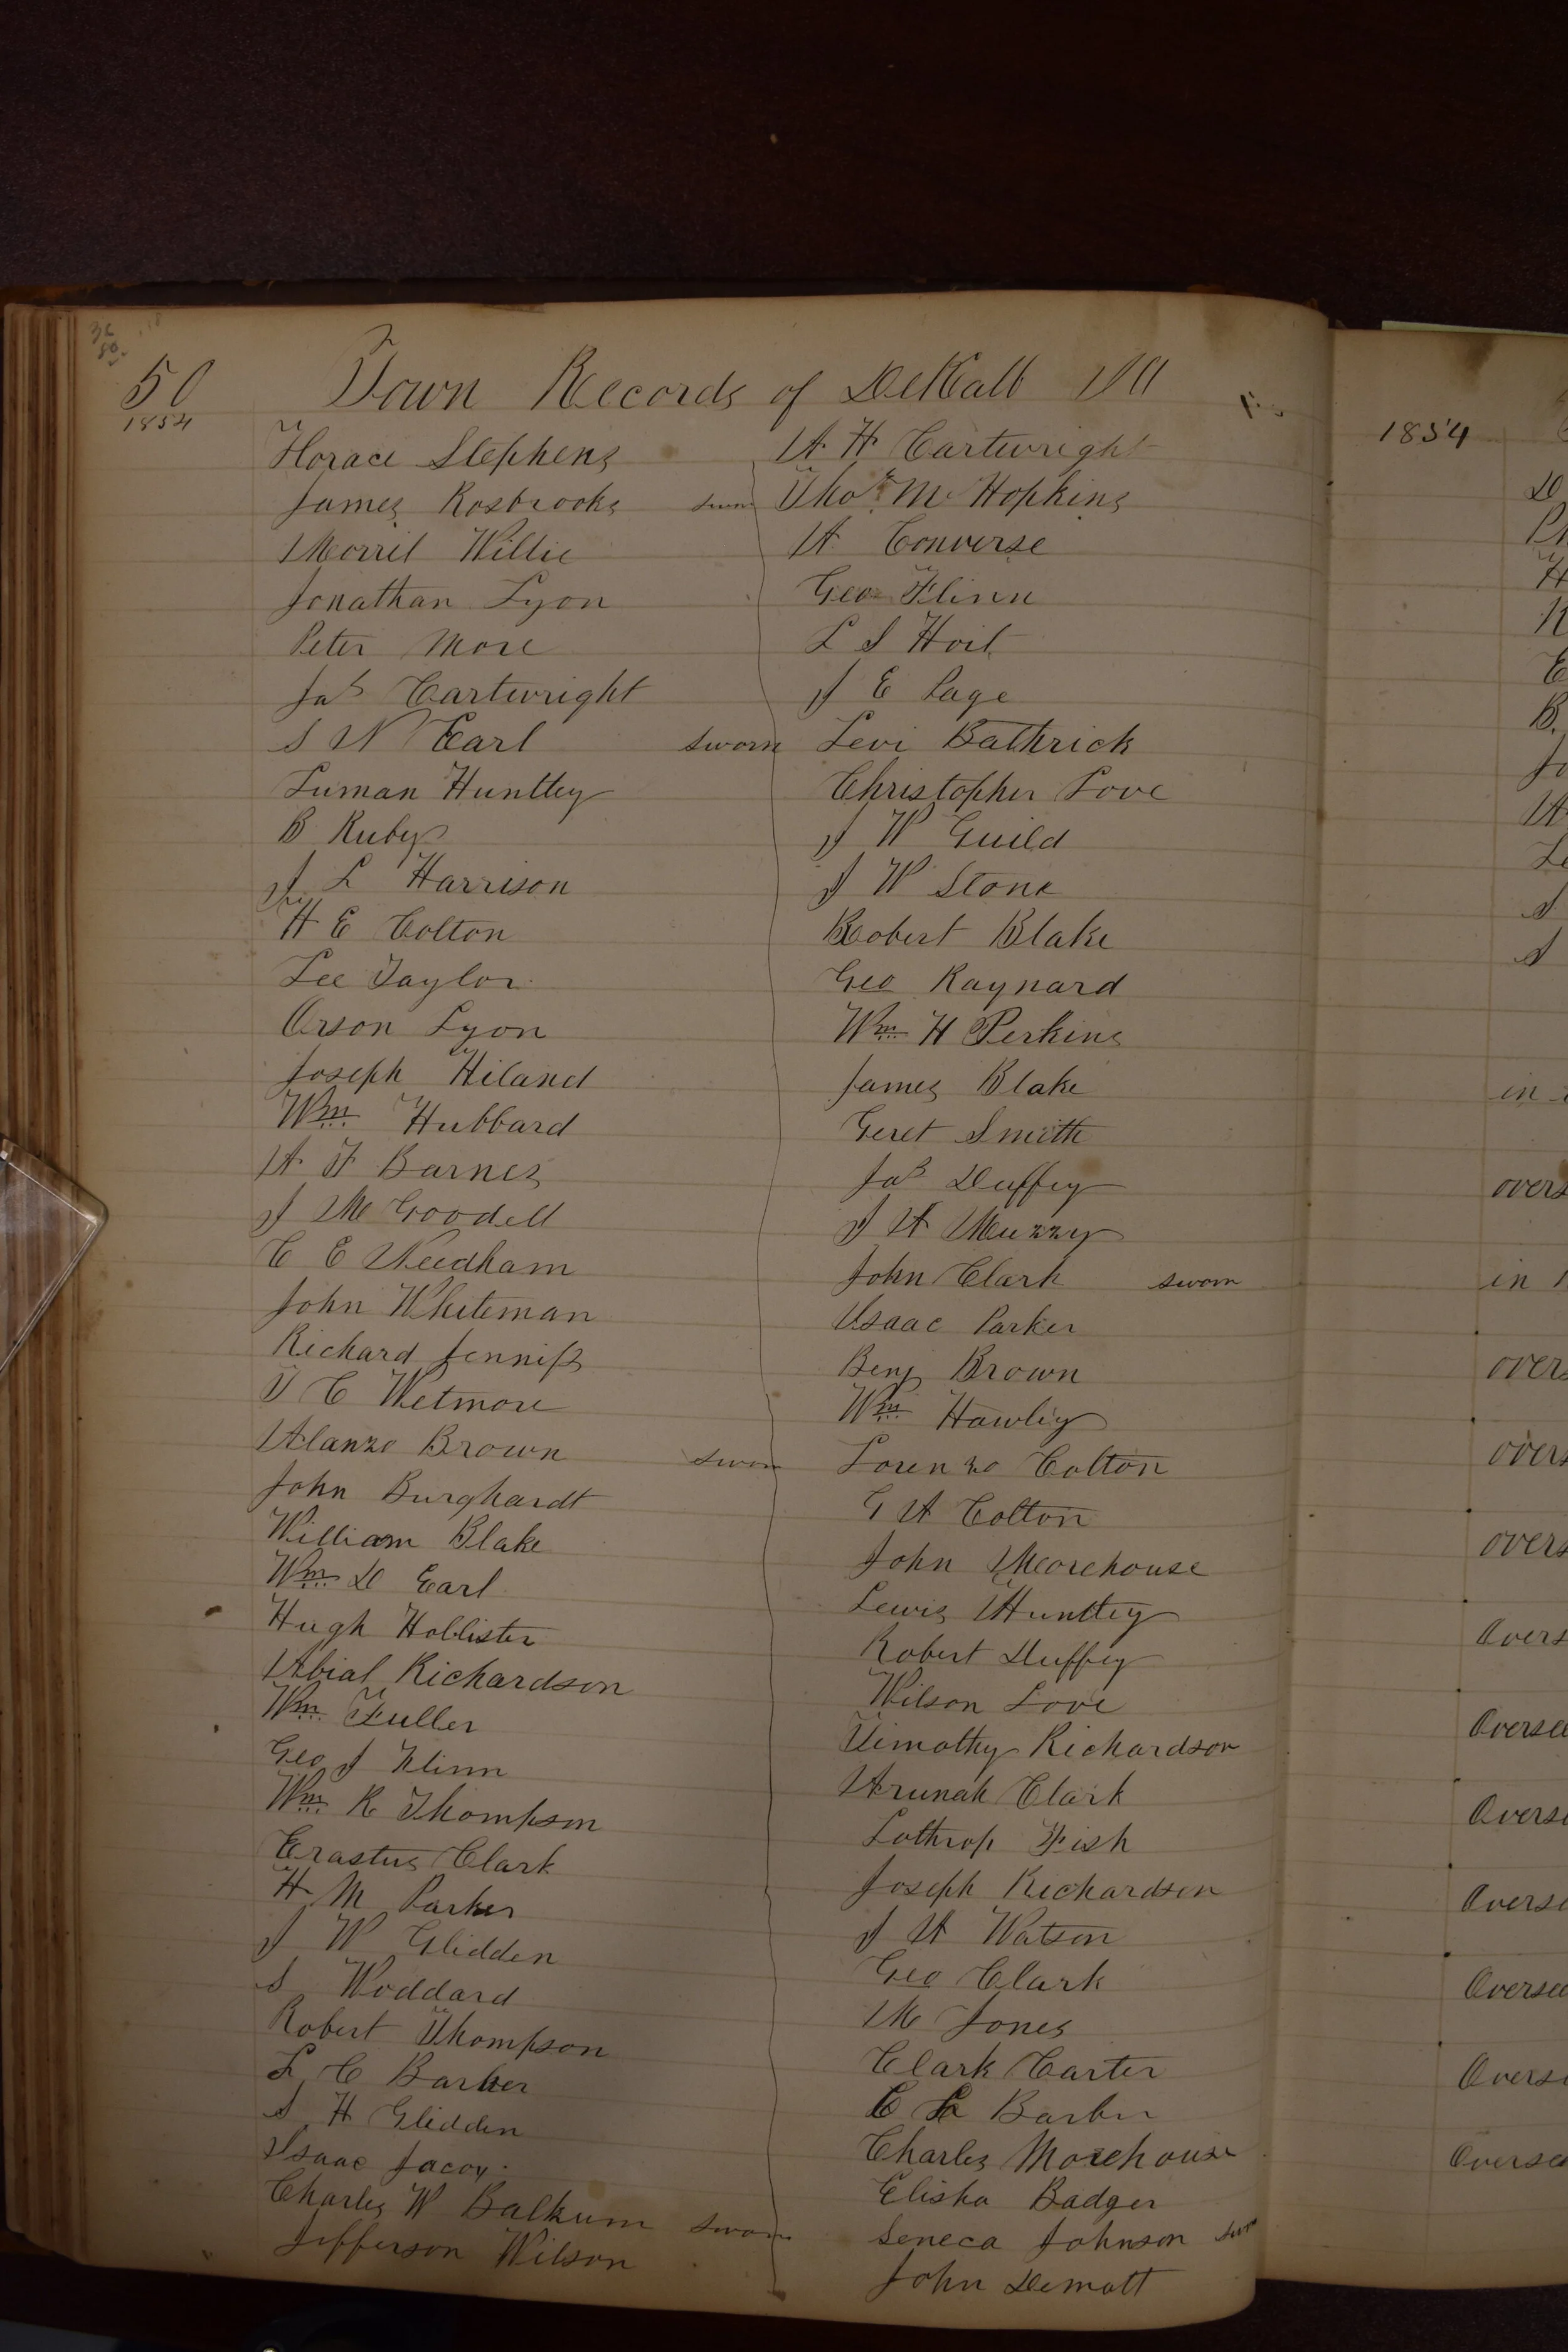 50
1854
Town Records of DeKalb Ill
Horace Stephens
James Rosbrooks sworn
Morril Willie
Jonathan Lyon
Peter More
Jas Cartwright
S N Earl sworn
Luman Huntley
B Ruby
J L Harrison
H E Colton
Lee Taylor
Orson Lyon
Joseph Hiland
Wm Hubbard
A F Barnes
J M Goodell
C E Needham
John Whiteman
Richard Jenniss
T C Wetmore
Alanzo Brown sworn
John Burghardt
William Blake
Wm D Earl
Hugh Hollister
Abial Richardson
Wm Fuller
Geo J Flinn
Wm R Thompson
Erastus Clark
H M Parker
J W Glidden
S Woddard
Robert Thompson
L C Barber
S H Glidden
Isaac Jacox
Charles W Balkum sworn
Jefferson Wilson
A H Cartwright
Thos M Hopkins
A Converse
Geo Flinn
L S Hoit
J E Page
Levi Bathrick
Christopher Love
J W Guild
J W Stone
Robert Blake
Geo Raynard
Wm H Perkins
James Blake
Geret Smith
Jas Duffey
J A Muzzy
John Clark sworn
Isaac Parker
Benj Brown
Wm Hawley
Lorenzo Colton
G A Colton
John Morehouse
Lewis Huntley
Robert Duffey
Wilson Love
Timothy Richardson
Arunah Clark
Lothrop Fish
Joseph Richardson
J A Watson
Geo Clark
M Jones
Clark Carter
C Barber
Charles Morehouse
Elisha Badger
Seneca Johnson swor
John Demott
1854
D
H
E
B.
Jo
A
Le
S
S
in
overs
in
overs
overs
overs
Overs
Oversee
Overse
Overse
Oversee
Overse
Oversee